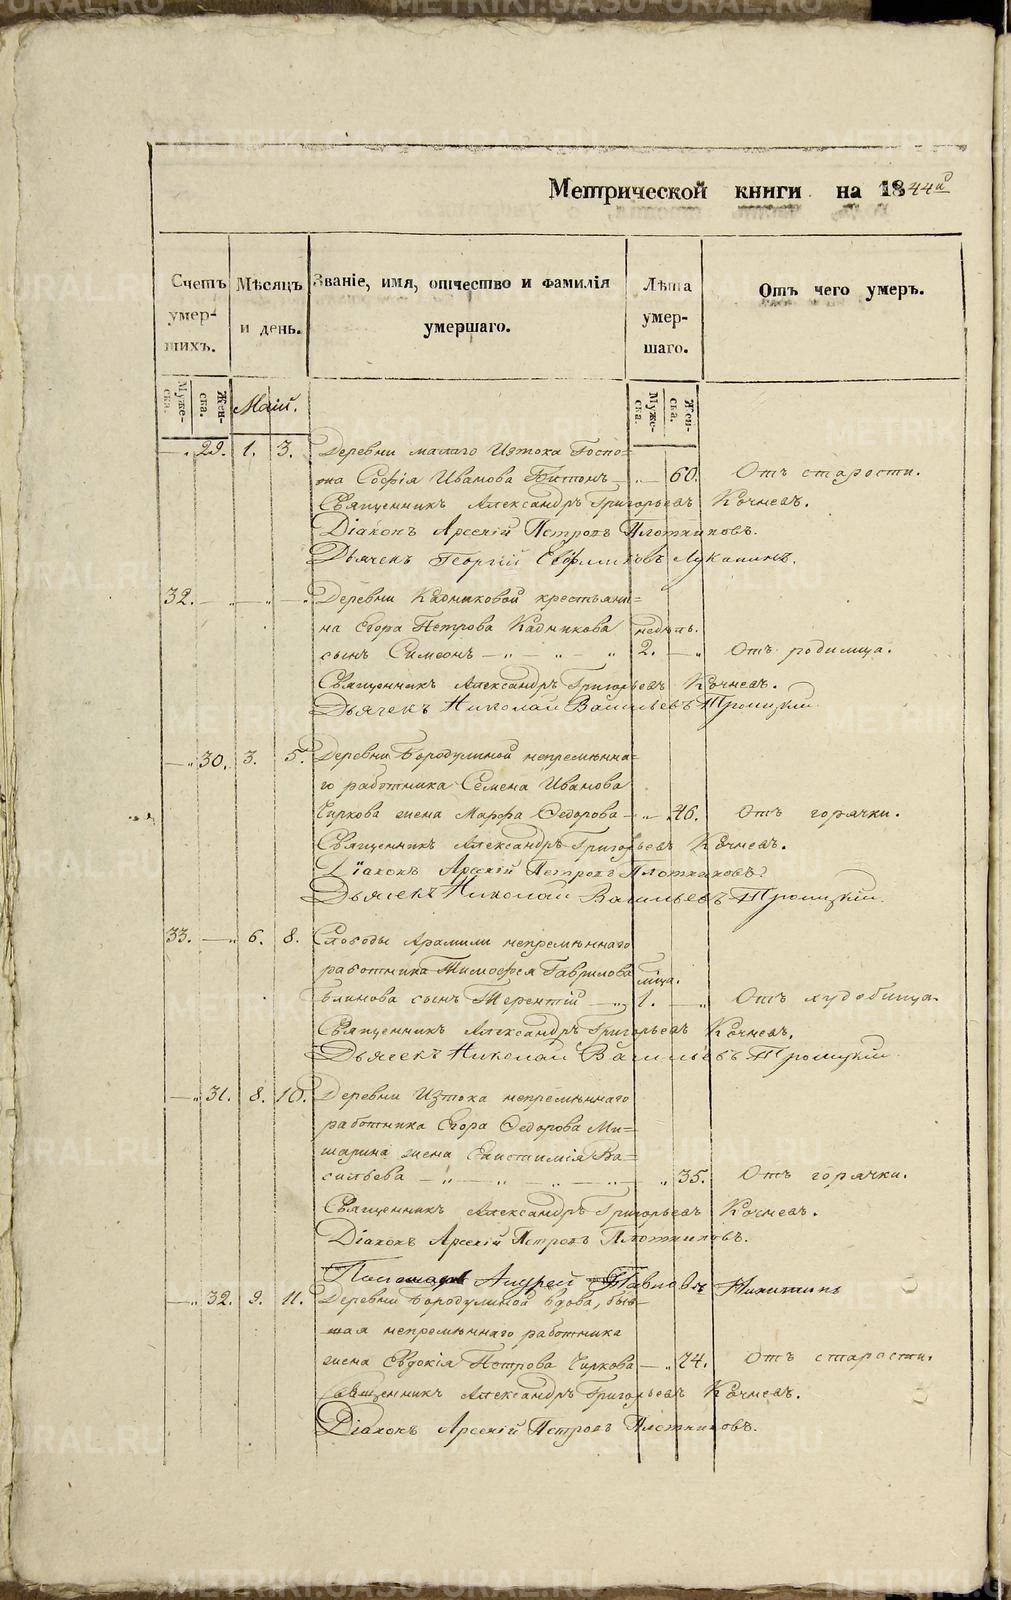 Метрической книги на 1844й
Счетъ умер- шихъ.
Мѣсяцъ и день.
Званіе, имя, отчество и фамилія умершаго.
Лѣта умер- шаго.
Отъ чего умеръ.
Муже- ска. Жен- ска. Маій. Муже- ска. Жен- ска.
29. 1. 3. Деревни малаго Изтока Госпо=
жа Софія Иванова 60. Отъ старости.
Священникъ Александръ Григорьевъ Кочневъ.
Діаконъ Арсеній Петровъ Плотниковъ.
Дьячекъ Георгій Евфимиовъ Луканинъ.
32. Деревни Кадниковой крестьяни=
на Егора Петрова Кадникова недѣль.
сынъ Симеонъ 2. Отъ родимца.
Священникъ Александръ Григорьевъ Кочневъ.
Дьячекъ Николай Васильевъ Троицкій.
30. 3. 5. Деревни Бородулиной непремѣнна=
го работника Семена Иванова
Чиркова жена Марфа Ѳедорова 46. Отъ горячки.
Священникъ Александръ Григорьевъ Кочневъ.
Діаконъ Арсеній Петровъ Плотниковъ.
Дьячекъ Николай Васильевъ Троицкій.
33. 6. 8. Слободы Арамили непремѣннаго
работника Тимофея Гаврилова мѣца.
Блинова сынъ Терентій 1. Отъ худобища.
Священникъ Александръ Григорьевъ Кочневъ.
Дьячекъ Николай Васильевъ Троицкій.
31. 8. 10. Деревни Изтока непремѣннаго
работника Егора Ѳедорова Ми=
шарина жена Епистимія Ва=
сильева 35. Отъ горячки.
Священникъ Александръ Григорьевъ Кочневъ.
Діаконъ Арсеній Петровъ Плотниковъ.
Пономарь Андрей Павловъ Никитинъ
32. 9. 11. Деревни Бородулиной вдова, быв=
шая непремѣннаго работника
жена Евдокія Петрова Чиркова 74. Отъ старости.
Священникъ Александръ Григорьевъ Кочневъ.
Діаконъ Арсеній Петровъ Плотниковъ.
METRIKI.GASO-URAL.RU